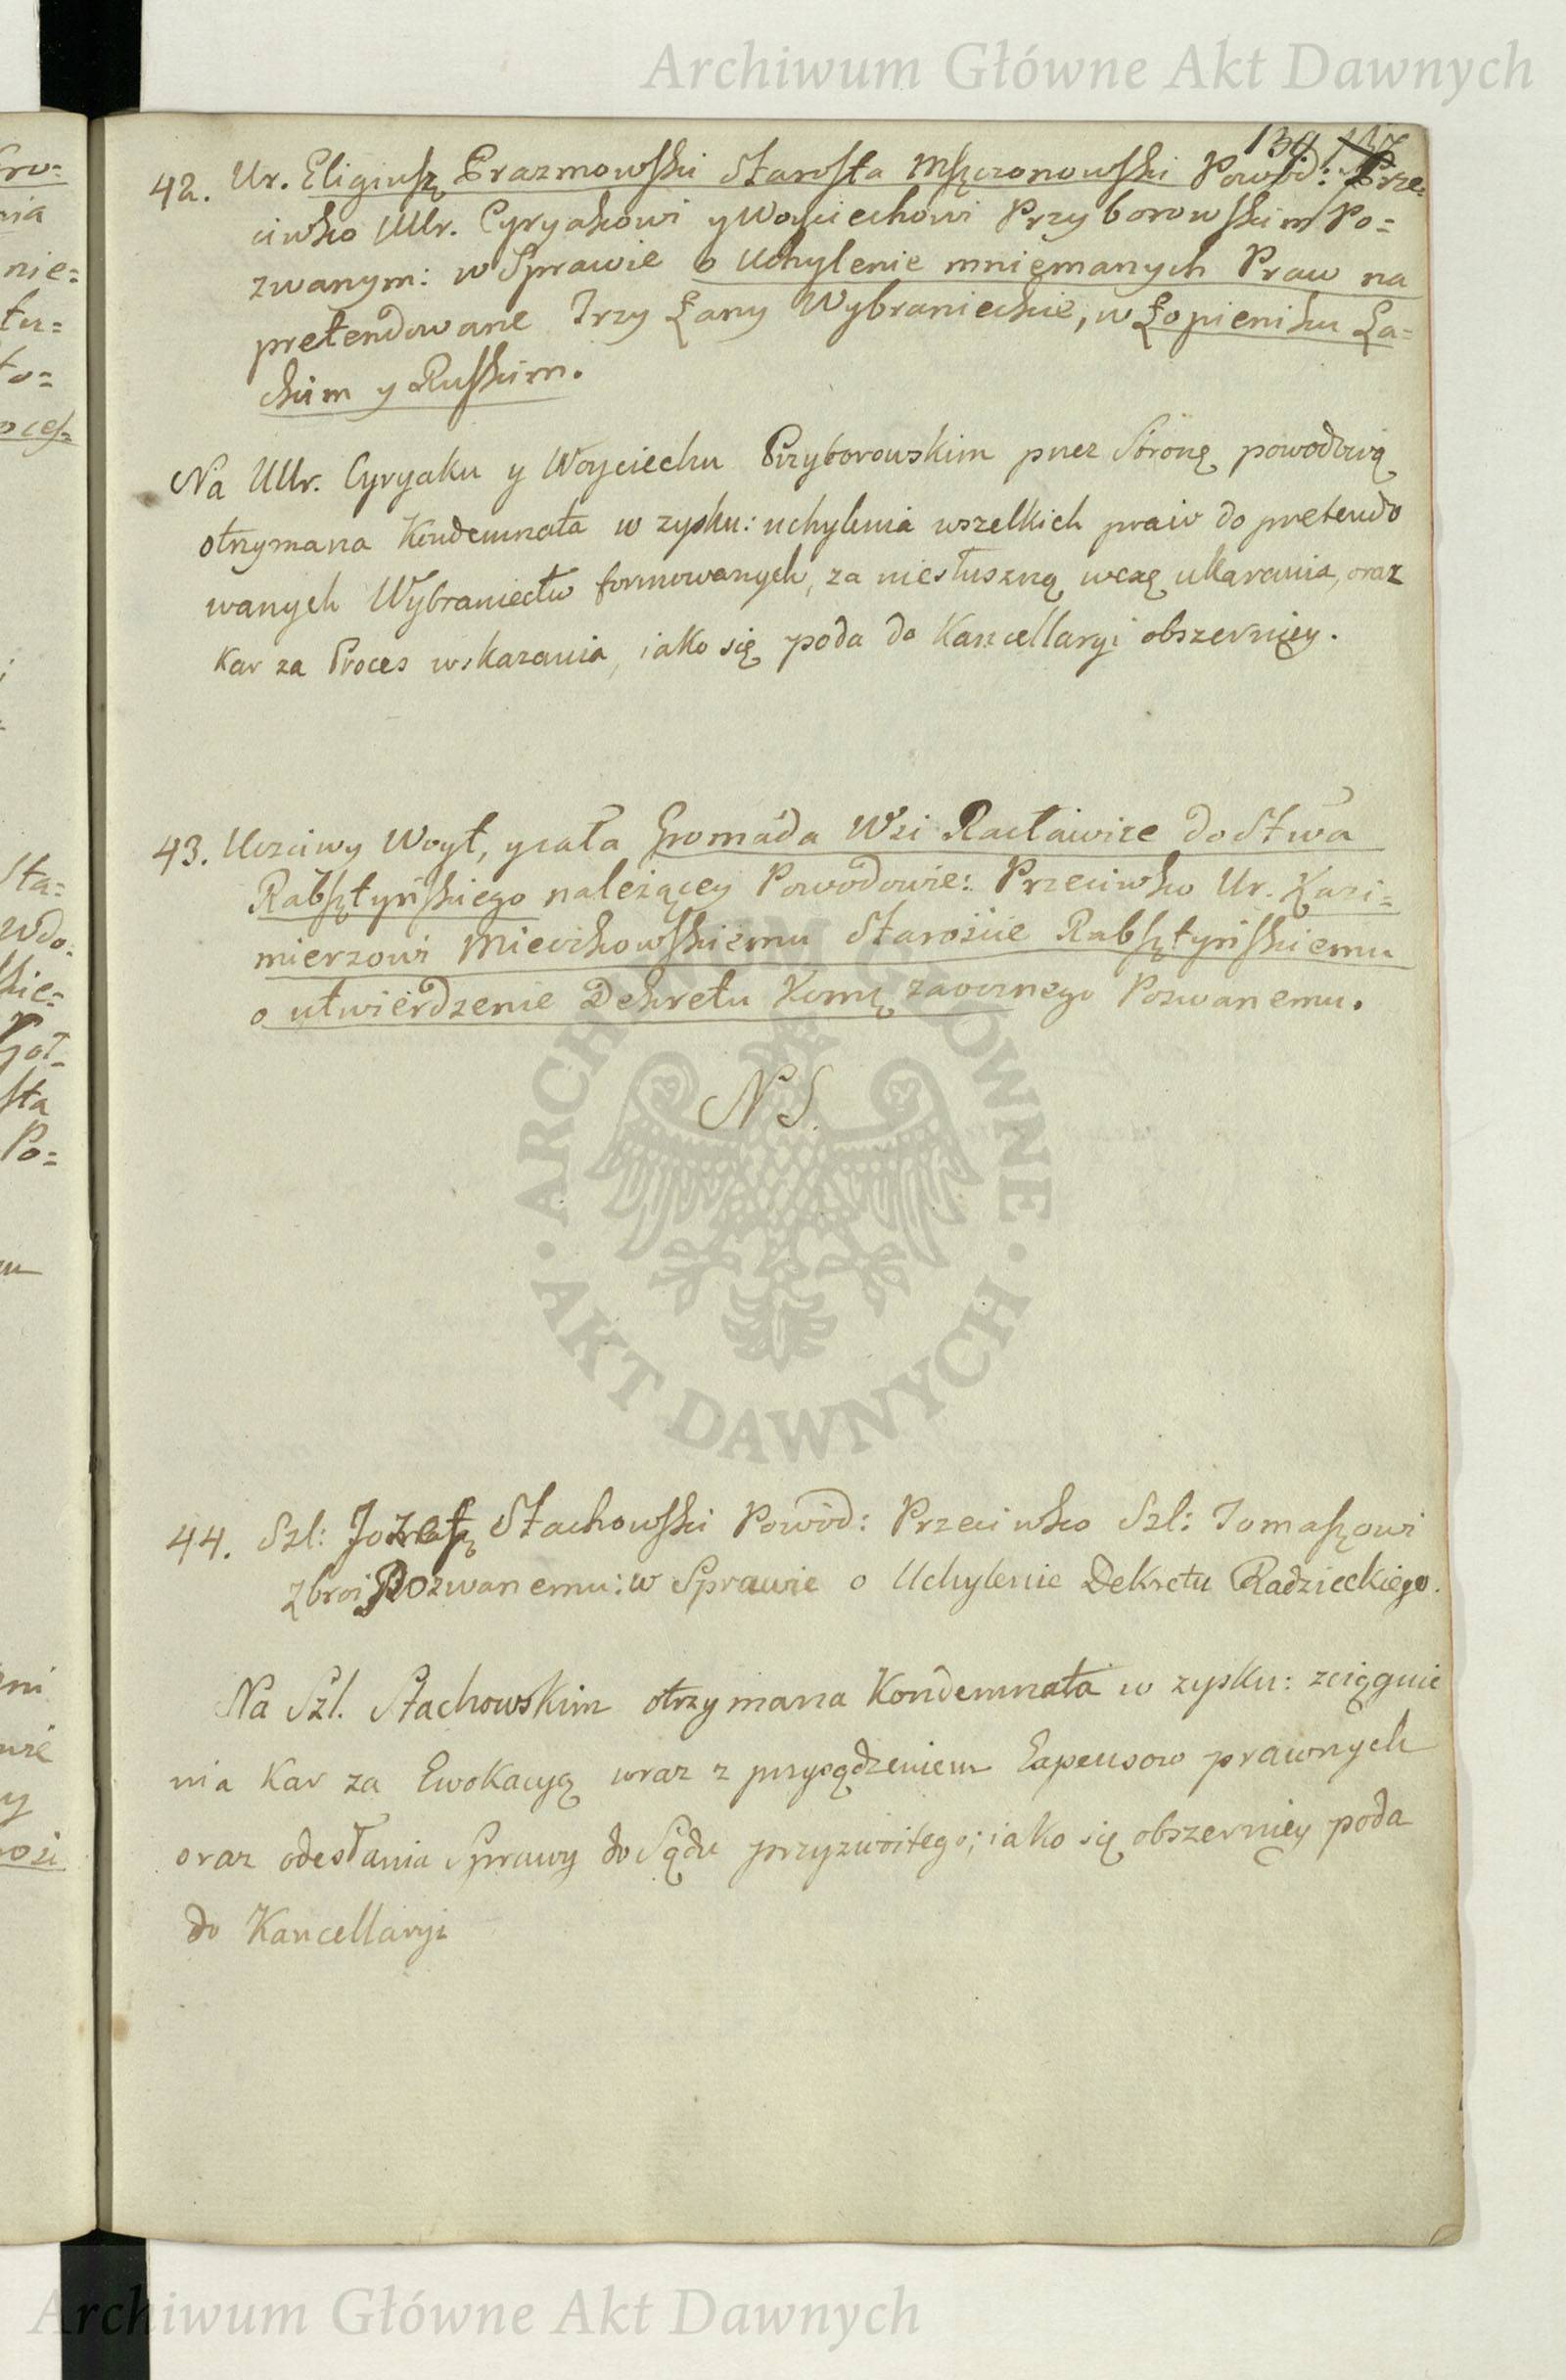 Archiwum Główne Akt Dawnych
139 137
42. Ur. Eligiusz Prazmowski Starosta Mszczonowski Powod: Prze=
ciwko UUr. Cyryakowi y Woyciechowi Przyborowskim Po=
zwanym: w Sprawie o Uchylenie mniemanych Praw na
pretendowane Trzy Łany Wybranieckie, w Łopieniku La=
ckim y Ruskim.
Na UUr. Cyryaku y Woyciechu Przyborowskim przez Stronę powodową
otrzymana Kondemnata w zysku: uchylenia wszelkich praw do pretendo
wanych Wybraniectw formowanych, za niesłuszną wexę ukarania, oraz
kar za Proces wskazania, iako się poda do Kancellaryi obszerniey.
43. Uczciwy Woyt, y cała Gromada Wsi Racławice do Stwa
Rabsztyńskiego należącey Powodowie: Przeciwko Ur. Kazi=
mierzowi Mieroszowskiemu Staroście Rabsztyńskiemu
o utwierdzenie Dekretu Komỹ zaocznego Pozwanemu.
NS.
44. Szl: Jozef Stachowski Powód: Przeciwko Szl: Tomaszowi
Zbroi Pozwanemu: w Sprawie o Uchylenie Dekretu Radzieckiego.
Na Szl. Stachowskim otrzymana Kondemnata w zysku: zciągnie
nia kar za Ewokacyą wraz z przysądzeniem Expensow prawnych
oraz odesłania Sprawy do Sądu przyzwoitego; iako się obszerniey poda
do Kancellaryi
ARCHIWUM GŁÓWNE · AKT DAWNYCH ·
Archiwum Główne Akt Dawnych